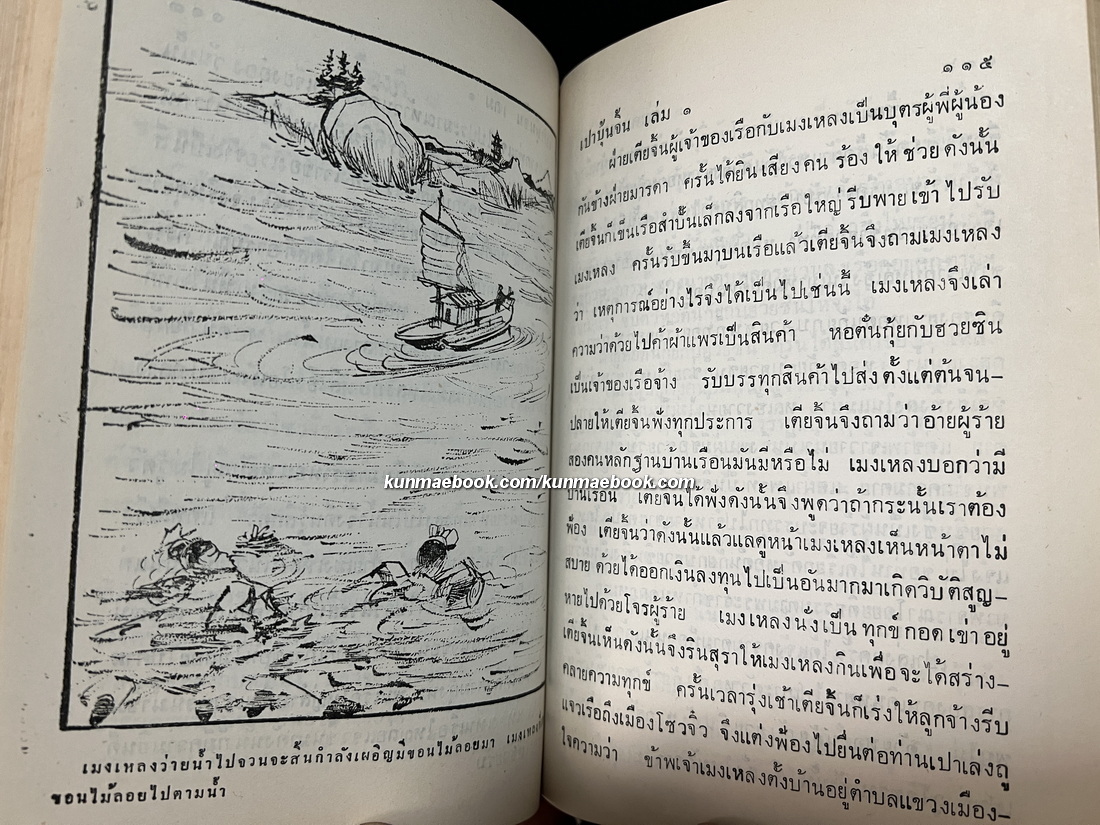 เมงเหลงว่ายน้ำไปจวนจะสิ้นกำลังเผอิญมีขอนไม้ลอยมา
ขอนไม้ลอยไปตามน้ำ
๑๑๕
เปาบุ้นจิ้น เล่ม ๑
ฝ่ายเตียจิ้นผู้เจ้าของเรือกับเมงเหลงเป็นบุตรผู้พี่ผู้น้อง
กันข้างฝ่ายมารดา ครั้นได้ยินเสียงคนร้องให้ช่วยดังนั้น
เตียจิ้นก็เข็นเรือสำปั้นเล็กลงจากเรือใหญ่รีบพายเข้าไปรับ
เมงเหลง ครั้นรับขึ้นมาบนเรือแล้วเตียจิ้นจึงถามเมงเหลง
ว่า เหตุการณ์อย่างไรจึงได้เป็นไปเช่นนี้ เมงเหลงจึงเล่า
ความว่าด้วยไปค้าผ้าแพรเป็นสินค้า หอตั่นกุ้ยกับฮวยซิน
เป็นเจ้าของเรือจ้าง รับบรรทุกสินค้าไปส่ง ตั้งแต่ต้นจน–
ปลายให้เตียจิ้นฟังทุกประการ เตียจิ้นจึงถามว่าอ้ายผู้ร้าย
สองคนหลักฐานบ้านเรือนมันมีหรือไม่ เมงเหลงบอกว่ามี
บ้านเรือน เตียจิ้นได้ฟังดังนั้นจึงพูดว่าถ้ากระนั้นเราต้อง
ฟ้อง เตียจิ้นว่าดังนั้นแล้วแลดูหน้าเมงเหลงเห็นหน้าตาไม่
สบาย ด้วยได้ออกเงินลงทุนไปเป็นอันมากมาเกิดวิบัติสูญ–
หายไปด้วยโจรผู้ร้าย เมงเหลงนั่งเป็นทุกข์กอดเข่าอยู่
เตียจิ้นเห็นดังนั้นจึงรินสุราให้เมงเหลงกินเพื่อจะได้สร่าง–
คลายความทุกข์ ครั้นเวลารุ่งเช้าเตียจิ้นก็เร่งให้ลูกจ้างรีบ
แจวเรือถึงเมืองโซวจิ๋ว จึงแต่งฟ้องไปยื่นต่อท่านเปาเล่งถู
ใจความว่า ข้าพเจ้าเมงเหลงตั้งบ้านอยู่ตำบลแขวงเมือง–
kunmaebook.com/kunmaebook.com